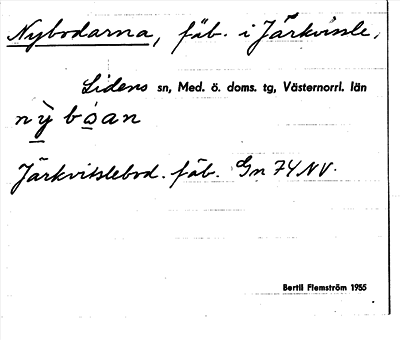 Nybodarna, fäb. i Järkvissle,
Lidens sn, Med. ö. doms. tg, Västernorrl. län
nỳ bóan
Järkvitslebod. fäb. Gn 74 NV.
Bertil Flemström 1955